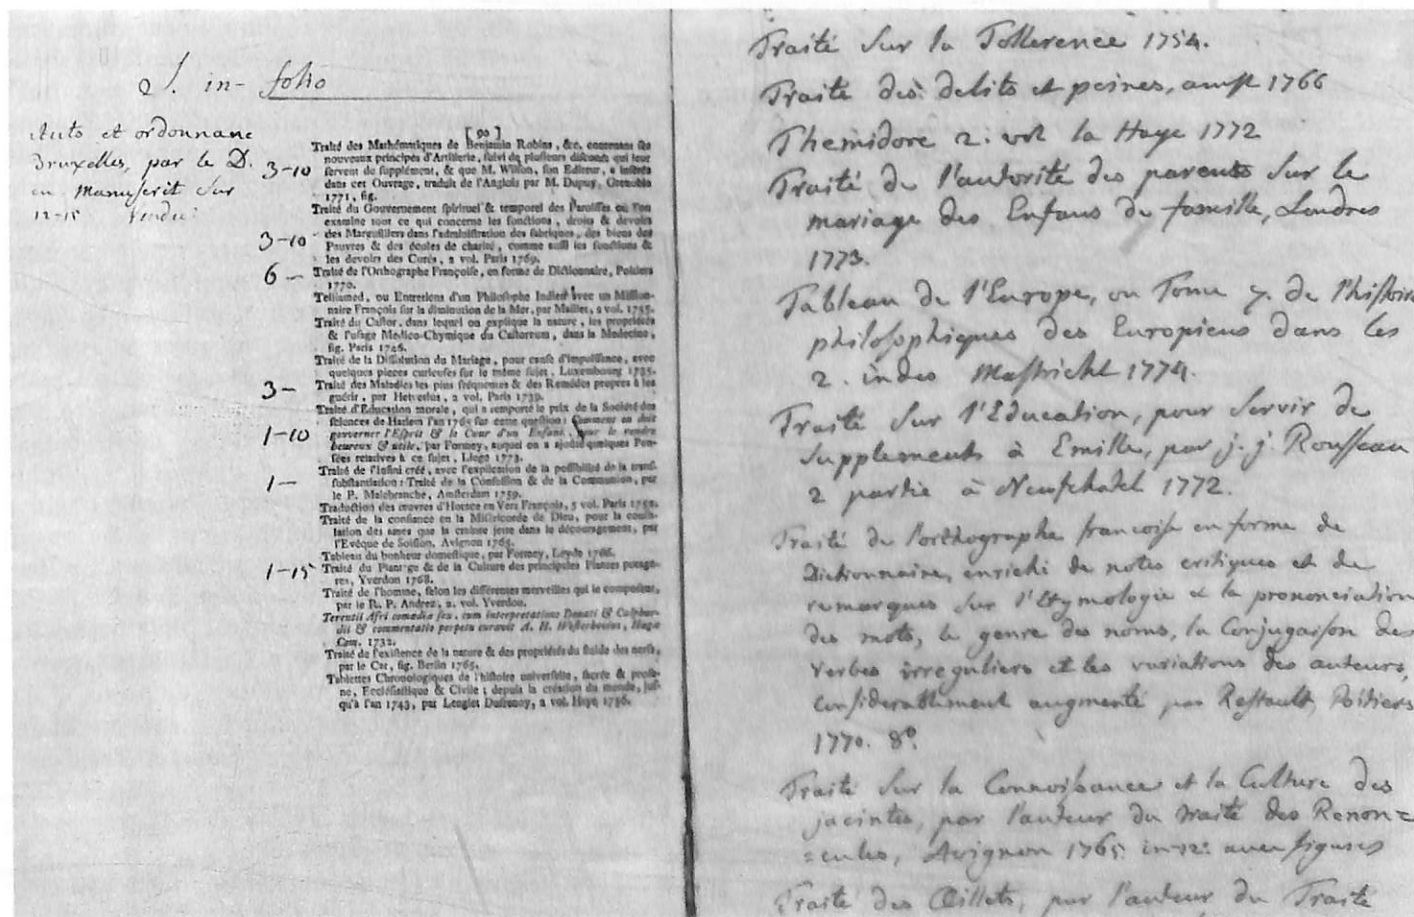 2 S. in-folio
et ordonnanc
Bruxelles, par le D.
en Manuscrit sur
12-15 Vendu:
[ 90 ]
Traité des Mathématiques de Benjamin Robins, &c. contenant ses
nouveaux principes d'Artillerie, suivi de plusieurs discours qui leur
3-10 servent de supplément, & que M. Wilson, son Editeur, a insérés
dans cet Ouvrage, traduit de l'Anglois par M. Dupuy, Grenoble
1771, fig.
Traité du Gouvernement spirituel & temporel des Paroisses où l'on
examine tout ce qui concerne les fonctions, droits & devoirs
des Marguilliers dans l'administration des fabriques, des biens des
3-10 Pauvres & des écoles de charité, comme aussi les fonctions &
les devoirs des Curés, 2 vol. Paris 1769.
6 - Traité de l'Orthographe Françoise, en forme de Dictionnaire, Poitiers
1770.
Telliamed, ou Entretiens d'un Philosophe Indien avec un Mission-
naire François sur la diminution de la Mer, par Maillet, 2 vol. 1755.
Traité du Castor, dans lequel on explique la nature, les propriétés
& l'usage Medico-Chymique du Castoreum, dans la Medecine,
fig. Paris 1746.
Traité de la Dissolution du Mariage, pour cause d'impuissance, avec
quelques pieces curieuses sur le même sujet, Luxembourg 1735.
3 - Traité des Maladies les plus fréquentes & des Remédes propres à les
guérir, par Helvetius, 2 vol. Paris 1739.
Traité d'Education morale, qui a remporté le prix de la Société des
sciences de Harlem l'an 1765 sur cette question: Comment on doit
1-10 gouverner l'Esprit & le Cœur d'un Enfant, pour le rendre
heureux & utile, par Formey, auquel on a ajouté quelques Pen-
sées relatives à ce sujet, Liege 1773.
Traité de l'Infini créé, avec l'explication de la possibilité de la trans-
1 - substantiation: Traité de la Confession & de la Communion, par
le P. Malebranche, Amsterdam 1769.
Traduction des œuvres d'Horace en Vers François, 5 vol. Paris 1752.
Traité de la confiance en la Miséricorde de Dieu, pour la conso-
lation des ames que la crainte jette dans le découragement, par
l'Evêque de Soisson, Avignon 1765.
Tableau du bonheur domestique, par Formey, Leyde 1766.
1-15 Traité du Plantage & de la Culture des principales Plantes potagè-
res, Yverdon 1768.
Traité de l'homme, selon les différentes merveilles qui le composent,
par le R. P. Andrez, 2. vol. Yverdon.
Terentii Afri comœdiæ sex, cum interpretatione Donati & Calphur-
nii & commentatio perpetu curavit A. H. Westerhovius, Hagæ
Com. 1732.
Traité de l'existence de la nature & des propriétés du fluide des nerfs,
par le Cat, fig. Berlin 1765.
Tablettes Chronologiques de l'histoire universelle, sacrée & profa-
ne, Ecclésiastique & Civile; depuis la création du monde, jus-
qu'à l'an 1743, par Lenglet Dufresnoy, 2 vol. Haye 1756.
Traité sur la Tollerence 1754.
Traité des delits et peines, amst 1766
Themidore 2. vol la Haye 1772
Traité de l'autorité des parents sur le
mariage des Enfans de famille, Londres
1773.
Tableau de l'Europe, ou Tome 7. de l'histoire
philosophiques des Europiens dans les
2. indes Mastricht 1774.
Traité sur l'Education, pour servir de
supplements à Emille, par j. j. Rousseau
2 partie à Neufchatel 1772.
Traité de l'orthographe francoise en forme de
Dictionnaire, enrichi de notes critiques et de
remarques sur l'Etymologie & la prononciation
des mots, le genre des noms, la Conjugaison des
verbes irreguliers et les variations des auteurs,
considerablement augmenté par Restault, Poitiers
1770. 8º.
Traité sur la Connoissance et la Culture des
jacintes, par l'auteur du traité des Renon=
=cules, Avignon 1765. in-12: avec figures
Traité des Œillets, par l'auteur du Traité